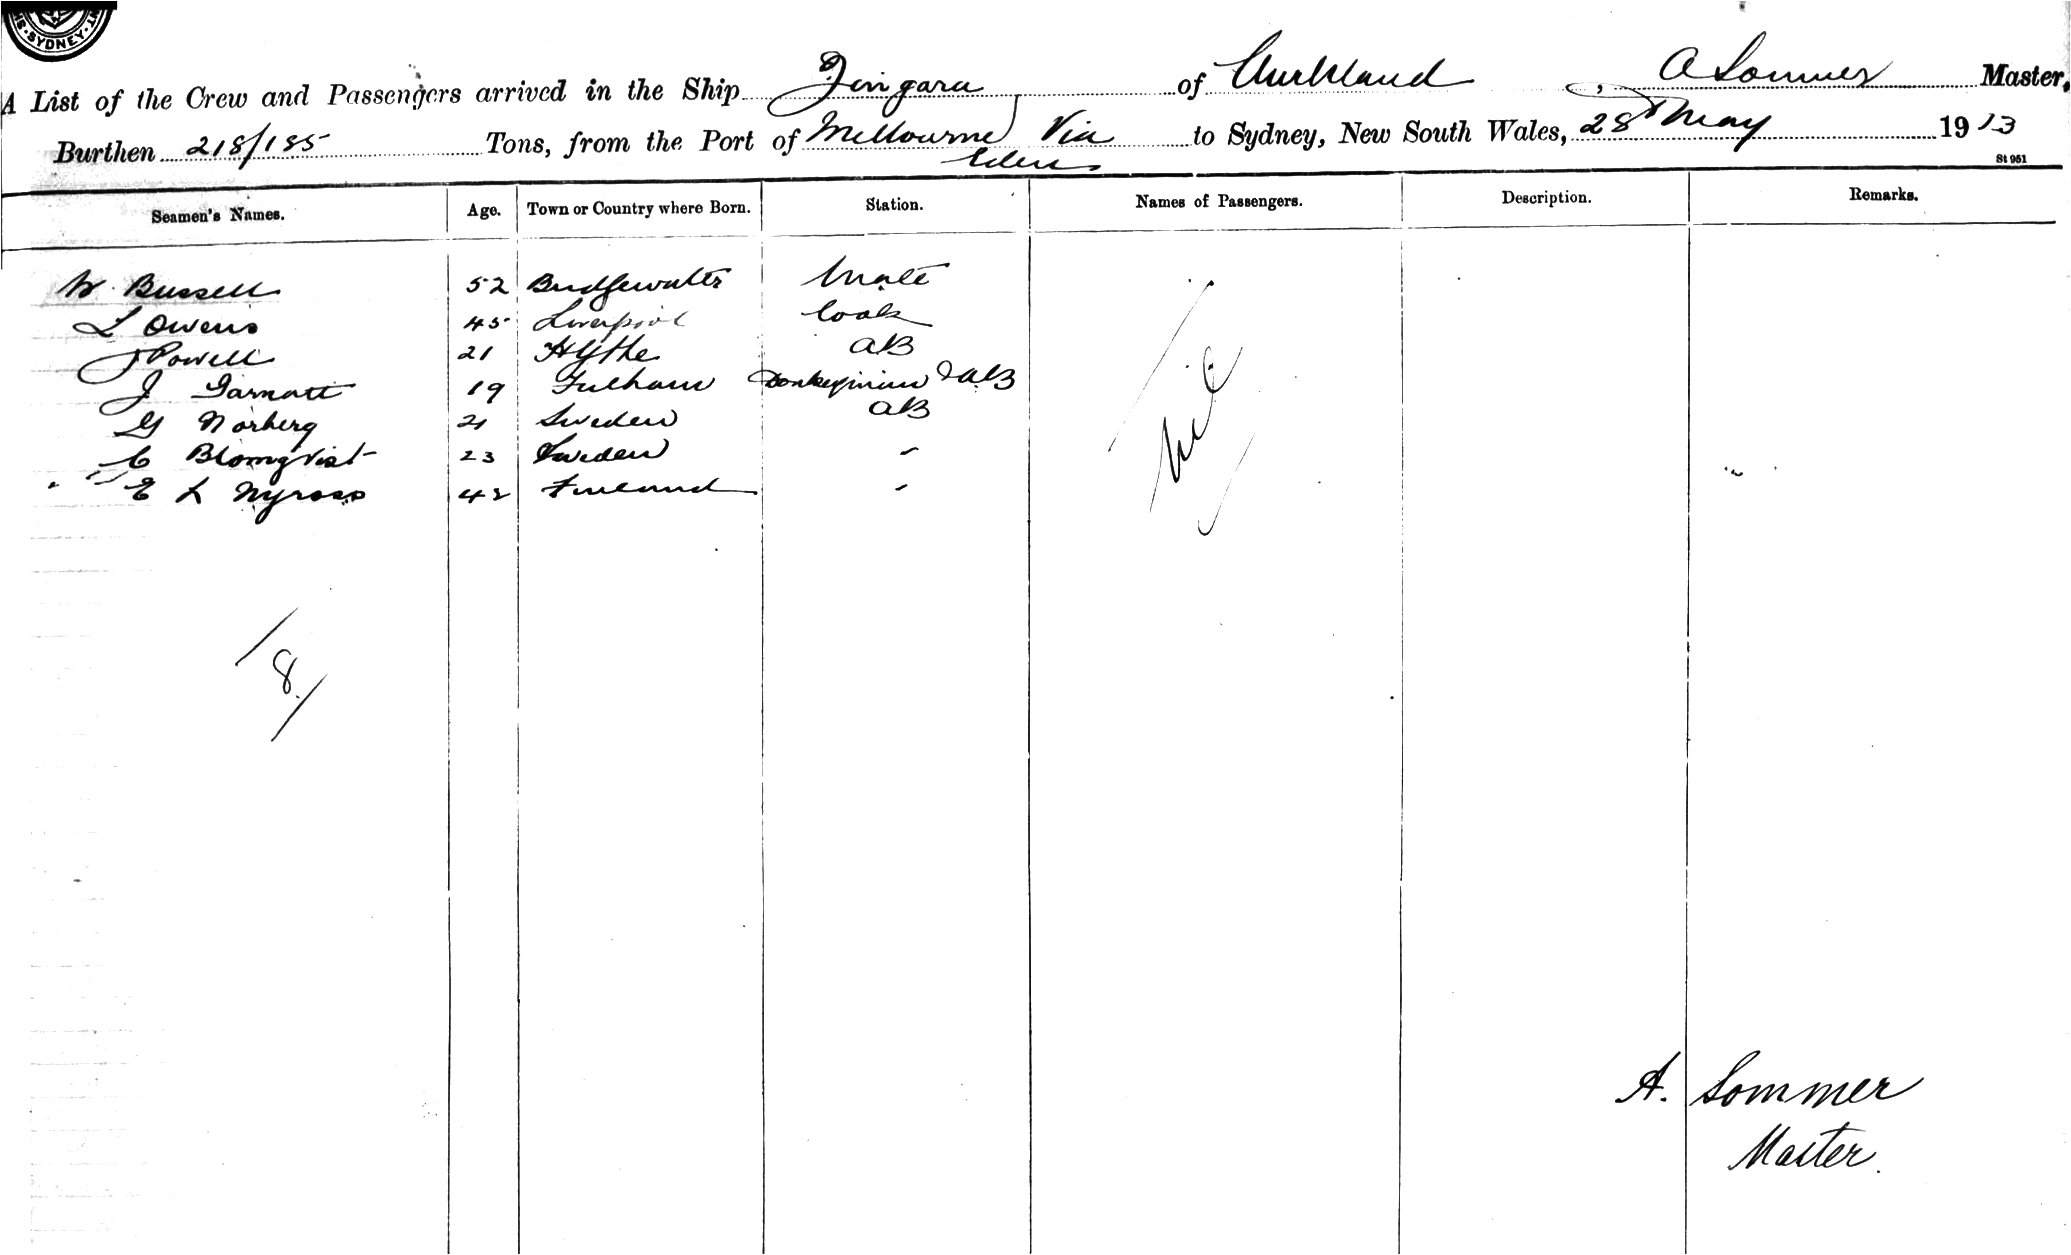 SYDNEY
A List of the Crew and Passengers arrived in the Ship Zingara of Auckland, A Sommer Master,
Burthen 218/185 Tons, from the Port of Melbourne Via to Sydney, New South Wales, 28th May 1913
Eden
St 951
Seamen's Names. Age. Town or Country where Born. Station. Names of Passengers. Description. Remarks.
W Bussell 52 Bridgewater Mate
L Owens 45 Liverpool Cook
J Powell 21 Hythe AB
J Garnatt 19 Fulham Donkeyman & AB
G Norberg 21 Sweden AB
C Blomqvist 23 Sweden "
E L Nyross 42 Finland "
Nil
8
A. Sommer
Master.